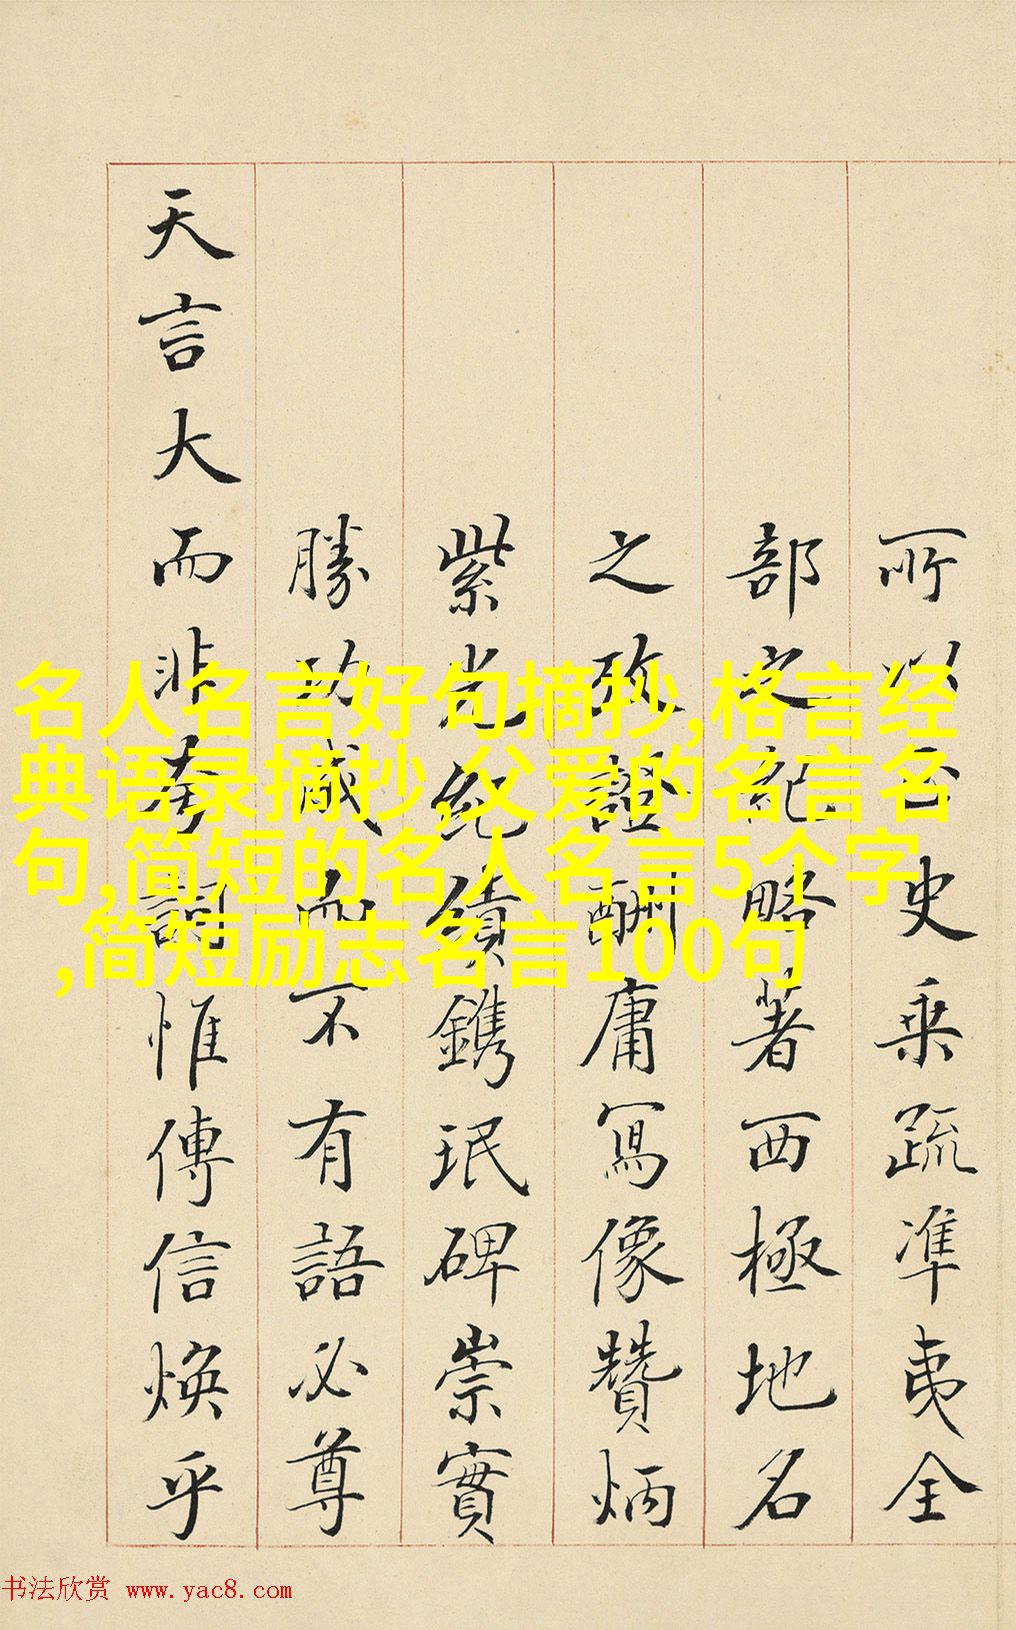 所以史乘疏準夷全
部紀略著西極地名
之證酬庸寫像贊炳
紫光紀績鐫珉碑崇實
勝功成而不有語必尊
天言大而非夸詞惟傳信煥乎
名人名言好句摘抄,格言经
典语录摘抄,父爱的名言名
句,简短的名人名言5个字
,简短励志名言100句
书法欣赏 www.yac8.com